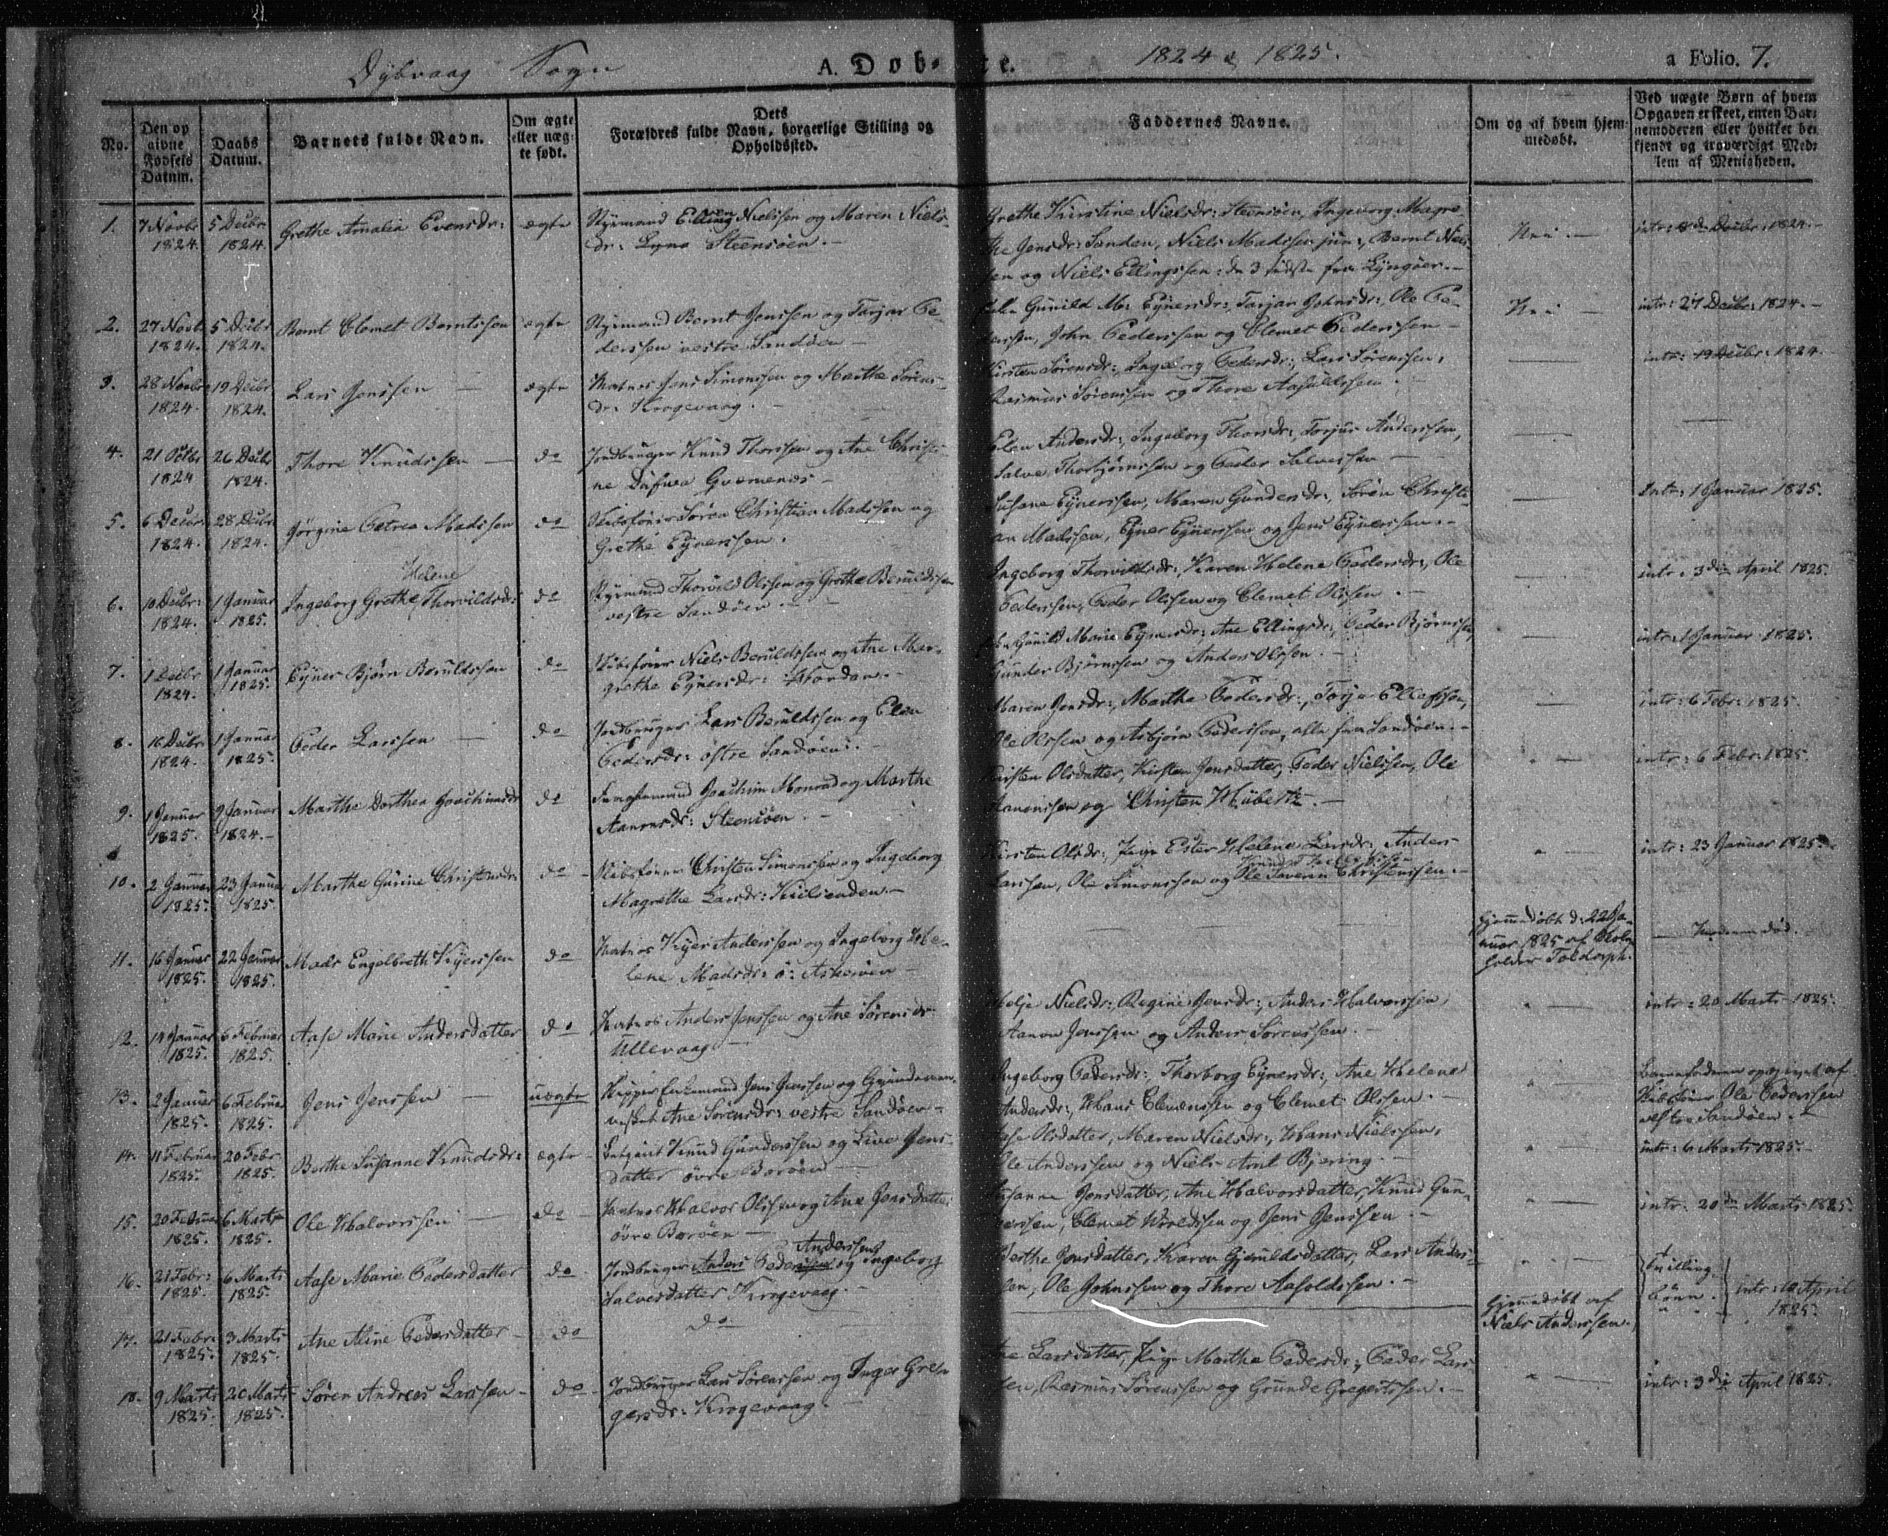 Dybvaag Sogn A. Døb- te. 1824 & 1825. a Folio. 7.
No.
Den op
Fødsels
Datum.
Daabs
Datum.
Barnets fulde Navn.
Om ægte
eller uæg-
te født.
Dets
Forældres fulde Navn, borgerlige Stilling og
Opholdssted.
Faddernes Navne.
Om og af hvem hjem-
medøbt.
Ved uægte Børn af hvem
Opgaven er skeet, enten Bar-
nemoderen eller hvilket be-
kjendt og troværdigt Med-
lem af Menigheden.
1. 7 Novbr 1824. 5 Decbr 1824. Grethe Amalia Evensdr: ægte
Styrmand Even Nielssen og Maren Niels-
dr: Lyngø Steensøen.
Grethe Kirstine Nielsdr: Steensøen, Ingeborg Magre-
the Jensdr: Sanden, Niels Madssen jun:, Bernt Niel-
sen og Niels Ellingssen: de 3 sidste fra Lyngøer.
Nei. intr: Decbr: 1824.
2. 27 Novb. 1824. 5 Decbr 1824. Bernt Clemet Berntssen ægte
Styrmand Bernt Jenssen og Tarjer Pe-
derssen vestre Sandøen
Gunild Mar. Eynersdr: Tarjer Johnsdr: Ole Pe-
derssen, John Pederssen og Clemet Pederssen
Nei intr: 27 Decbr: 1824.
3. 28 Novbr 1824. 19 Decbr 1824. Lars Jenssen ægte
Matros Jens Simonssen og Marthe Sørens-
dr: Krogevaag.
Kirsten Sørensdr:, Ingeborg Pedersdr:, Lars Sørenssen,
Rasmus Sørenssen og Thore Aasuldssen.
intr: 19 Decbr: 1824.
4. 21 Octbr 1824 26 Decbr 1824. Thore Knudssen do
Jordbruger Knud Thorssen og Ane Christi-
ne
Elen Andersdr:, Ingeborg Thorsdr:, Torjur Anderssen,
Salve Thorbjørnssen og Peder Salvessen
5. 6 Decbr 1824. 28 Decbr 1824. Jørgine Petrea Madssen do
Skibsfører Søren Christian Madssen og
Grethe Eynerssen.
Susane Eynerssen, Maren Gundersdr:, Søren Christi-
an Madssen, Eyner Eynerssen og Jens Eynerssen.
Intr: 1 Januar 1825.
6. 10 Decbr: 1824. 1 Januar 1825. Ingeborg Grethe Helene Thorvildsdr: do
Styrmand Thorvild Olssen og Grethe Beruldssen
vestre Sandøen.
Ingeborg Thorvildsdr:, Karen Helene Pedersdr:, Ole
Pederssen, Peder Olssen og Clemet Olssen.
intr: 3die April 1825.
7. 1 Decbr 1824. 1 Januar 1825. Eyner Bjørn Beruldssen do
Skibsfører Niels Beruldssen og Ane Mar-
grethe Eynersdr:
Gunild Marie Eynersdr: Ane Ellingsdr:, Peder Bjørnssen,
Gunder Bjørnssen og Anders Olssen.
intr: 1 Januar 1825.
8. 16 Decbr 1824. 1 Januar 1825. Peder Larssen do
Jordbruger Lars Beruldssen og Elen
Pedersdr: østre Sandøen.
Maren Jensdr:, Marthe Pedersdr:, Torje Ellefssen,
Ole Olssen og Asbjørn Pederssen, alle fra Sandøen.
intr: 6 Febr: 1825.
9. 1 Januar 1825. 9 Januar 1824. Marthe Dorthea Joachimsdr do
Joachim Monrad og Marthe
Aanonsdr: Steensøen.
Kirsten Olsdatter, Kirsten Jensdatter, Peder Nielssen, Ole
Aanonssen og Christen Hübertz.
intr: 6 Febr. 1825.
10. 2 Januar 1825. 23 Januar 1825. Marthe Gurine Christensdr: do
Skibsfører Christen Simonssen og Ingeborg
Magrethe Larsdr: Kiilsenden.
Kirsten Olsdr:, Pige Ester Helene Larsdr:, Anders
Larssen, Ole Simonssen og Ole Severin Christenssen.
intr: 23 Januar 1825.
11. 16 Januar 1825. 22 Januar 1825. Mads Engelbreth Kyerssen do
Matros Kyer Anderssen og Ingeborg He-
lene Madsdr: ø: Askerøen
Hjemmedøbt d: 22 Ja-
nuar 1825 af
holder
død.
12. 14 Januar 1825. 6 Februar 1825. Aase Marie Andersdatter do
Matros Anders Jenssen og Ane Sørensdr
Ullevaag
Helje Nielsdr:, Regine Jensdr:, Anders Halvorssen,
Aanon Jenssen og Anders Sørenssen.
intr: 20 Marts 1825.
13. 2 Januar 1825. 6 Februar 1825. Jens Jenssen uægte
Skipper Enkemand Jens Jenssen og
Ane Sørensdr: vestre Sandøen
Ingeborg Pedersdr:, Thorborg Eynersdr:, Ane Helene
Andersdr:, Hans Clemenssen og Clemet Olssen.
Barnefaderen opgivet af
Skibsfører Ole Pederssen
Sandøen.
14. 11 Februar 1825. 20 Febr. 1825. Berthe Susanne Knudsdr: ægte
Knud Gunderssen og Live Jens-
datter øvre Borøen
Aase Olsdatter, Maren Nielsdr:, Hans Nielssen,
Ole Anderssen og Niels Arnt Bjering.
intr: 6 Marts 1825.
15. 20 Februar 1825. 6 Marts 1825. Ole Halvorssen do
Matros Halvor Olssen og Ane Jensdatter
øvre Borøen
Susanne Jensdatter, Ane Halvorsdatter, Knud Gun-
derssen, Clemet og Jens Jenssen
intr: 20de Marts 1825
16. 21 Febr: 1825. 6 Marts 1825. Aase Marie Pedersdatter do
Jordbruger Anders Pederssen Anderssen og Ingeborg
Salvesdatter Krogevaag.
Berthe Jensdatter, Karen Gjeruldsdatter, Lars Anders-
sen, Ole Johnssen og Thore Aasoldssen.
Tvilling-
børn. intr: April
1825.
17. 21 Febr: 1825. 3 Marts 1825. Ane Aline Pedersdatter do
do
Hjemmedøbt af
Niels Anderssen.
18. 9 Marts 1825. 20 Marts 1825. Søren Andreas Larssen do
Jordbruger Lars Sørenssen og Inger Gre-
gersdr: Krogevaag.
Ane Larsdatter, Pige Marthe Pedersdr:, Peder Lars-
sen, Rasmus Sørenssen og Grunde Gregertssen.
intr: 3die April 1825.